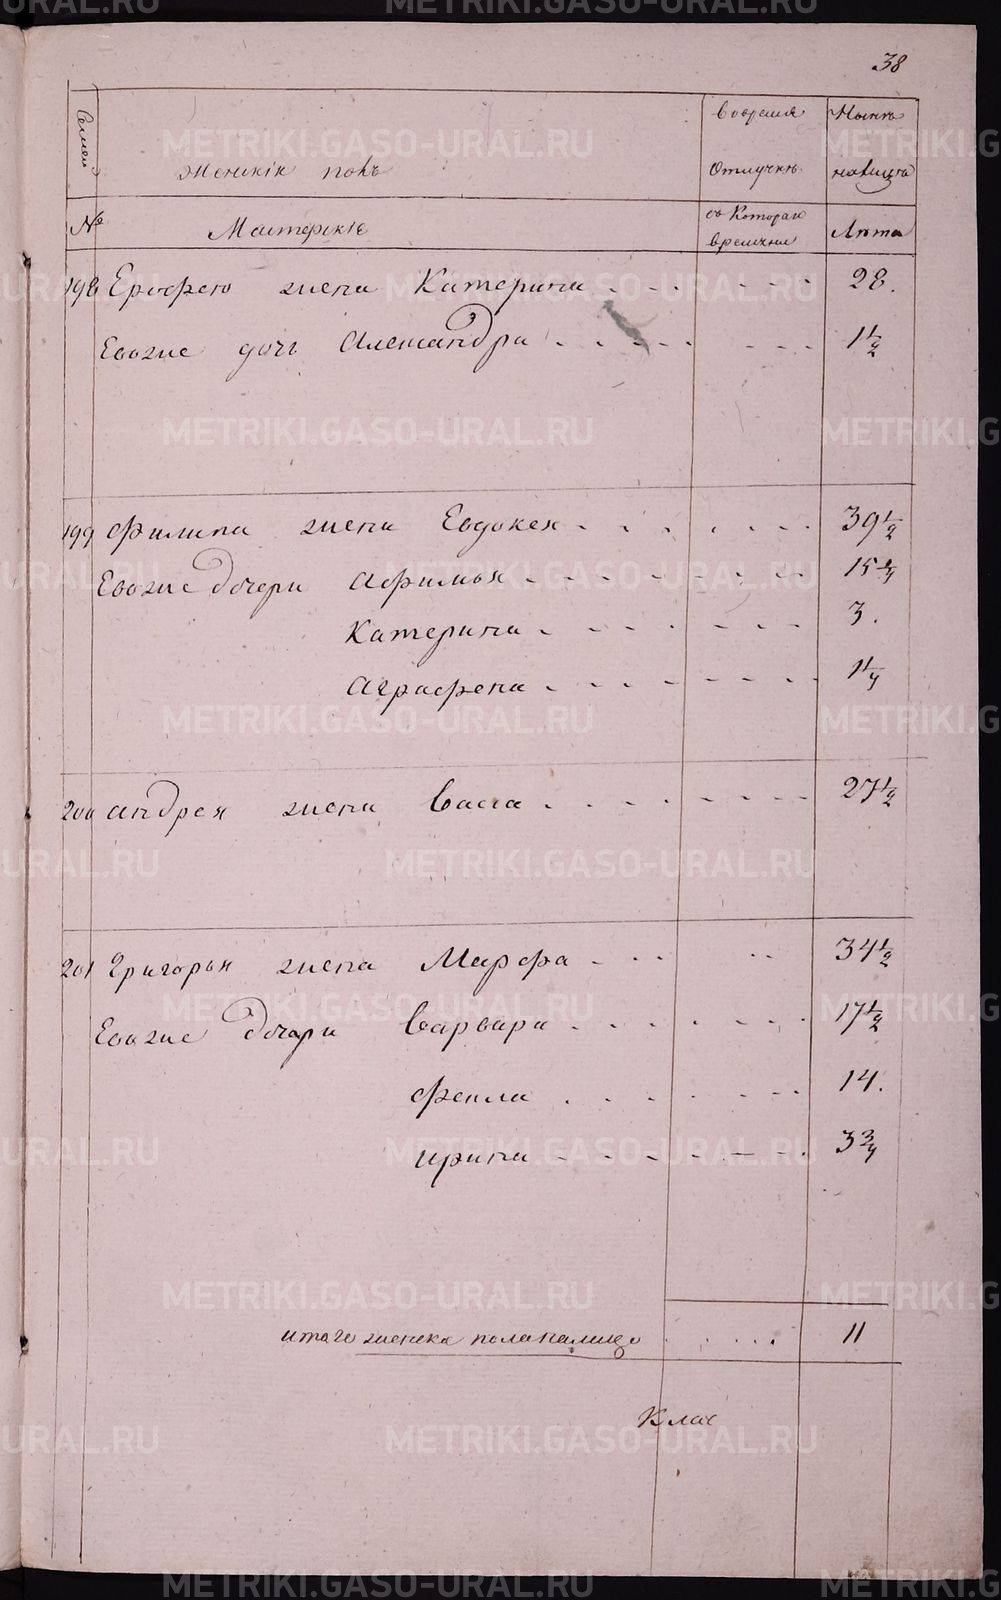 38
Семеи Женскiй полъ Вовремя Отлучкѣ Нынѣ налицо
№ Мастерскiе съ Котораго времѣни Лѣта
198 Ерофею жена Катерина 28.
Евоже дочь Александра 1 1/2
199 Филипа жена Евдокея 39 1/2
Евоже дочери Афимья 15 3/4
Катерина 3.
Аграфена 1 1/4
200 Андрея жена Васса 27 1/2
201 Григорья жена Марфа 34 1/2
Евоже дочери Варвара 17 1/2
Фекла 14.
Ирина 3 3/4
итого женска пола налицо 11
Клас
METRIKI.GASO-URAL.RU